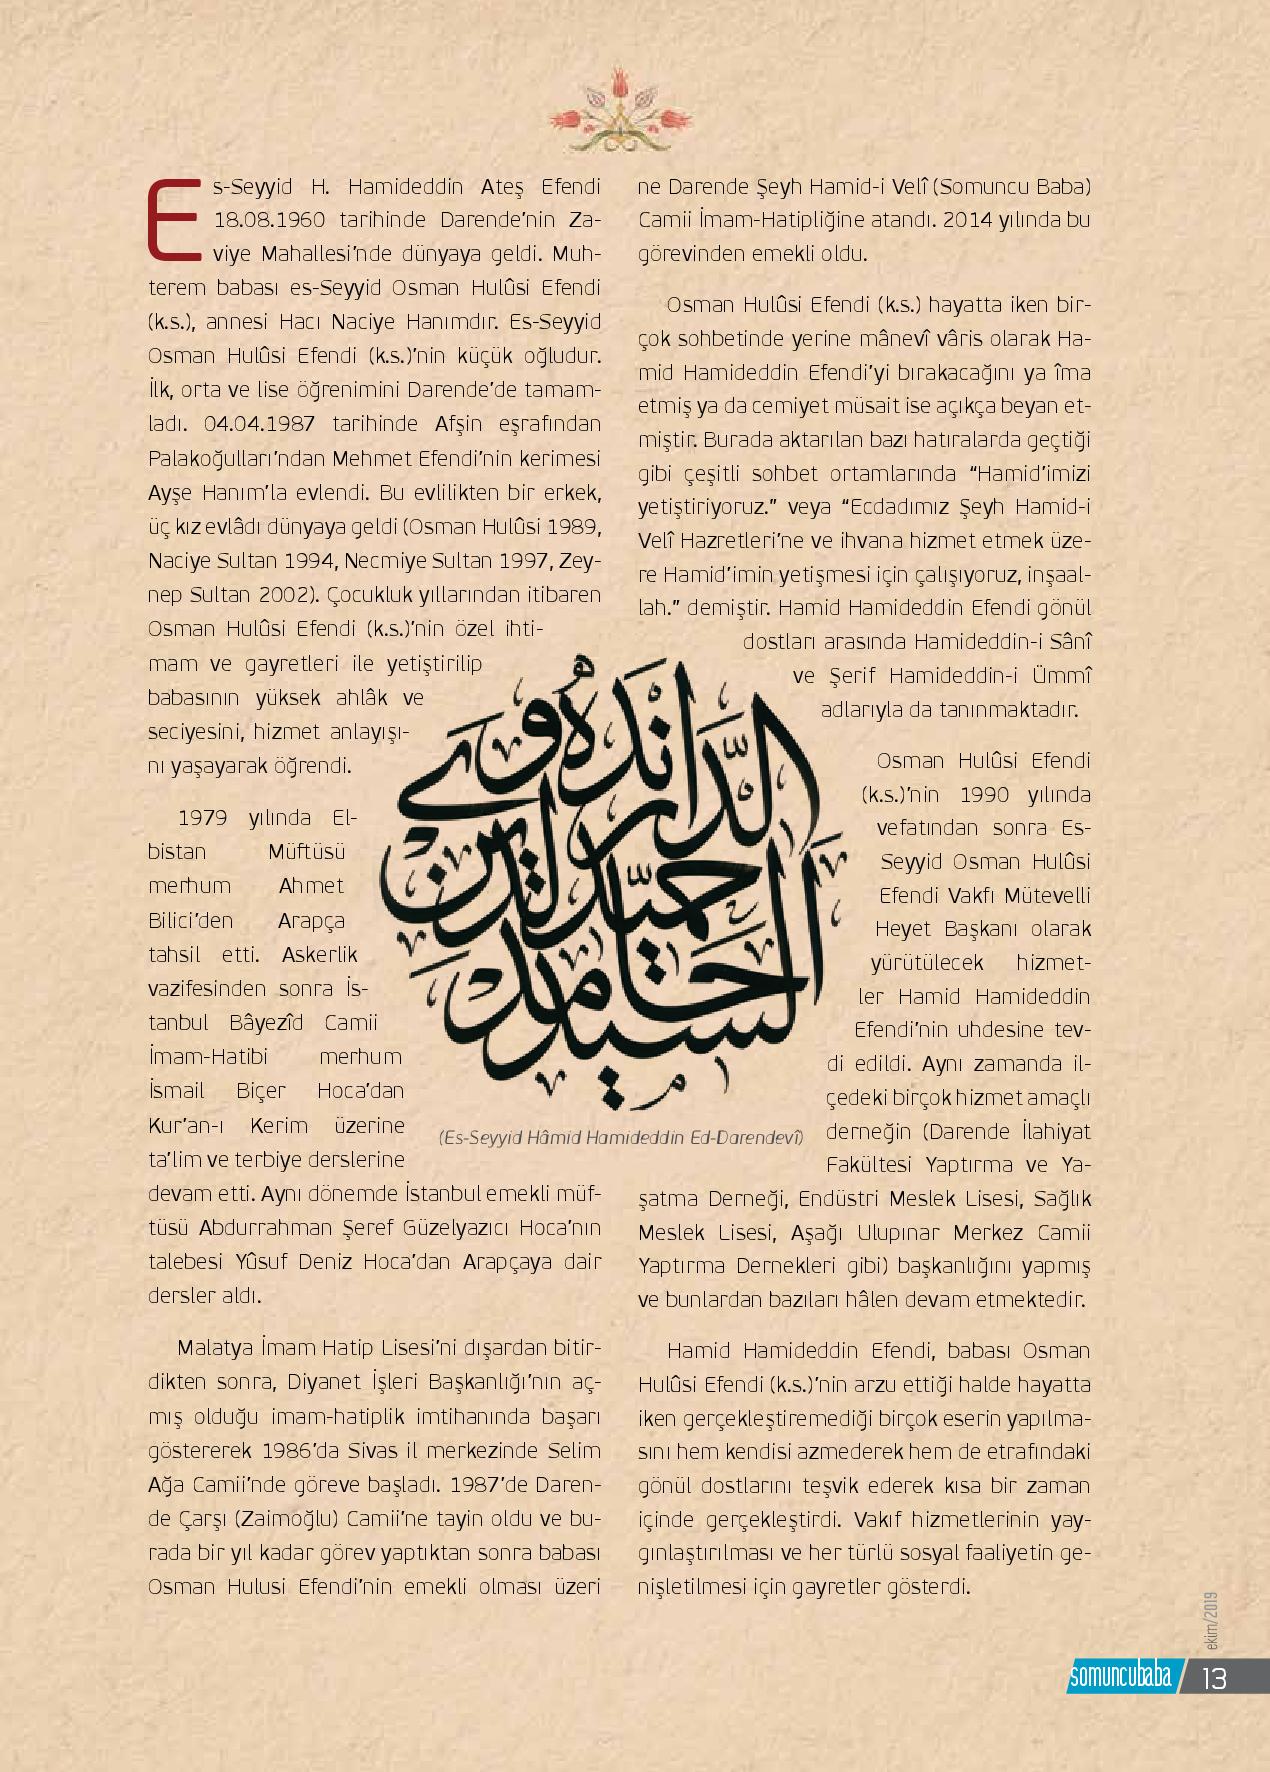 Es-Seyyid H. Hamideddin Ateş Efendi
18.08.1960 tarihinde Darende'nin Za-
viye Mahallesi'nde dünyaya geldi. Muh-
terem babası es-Seyyid Osman Hulûsi Efendi
(k.s.), annesi Hacı Naciye Hanımdır. Es-Seyyid
Osman Hulûsi Efendi (k.s.)'nin küçük oğludur.
İlk, orta ve lise öğrenimini Darende'de tamam-
ladı. 04.04.1987 tarihinde Afşin eşrafından
Palakoğulları'ndan Mehmet Efendi'nin kerimesi
Ayşe Hanım'la evlendi. Bu evlilikten bir erkek,
üç kız evlâdı dünyaya geldi (Osman Hulûsi 1989,
Naciye Sultan 1994, Necmiye Sultan 1997, Zey-
nep Sultan 2002). Çocukluk yıllarından itibaren
Osman Hulûsi Efendi (k.s.)'nin özel ihti-
mam ve gayretleri ile yetiştirilip
babasının yüksek ahlâk ve
seciyesini, hizmet anlayışı-
nı yaşayarak öğrendi.
1979 yılında El-
bistan Müftüsü
merhum Ahmet
Bilici'den Arapça
tahsil etti. Askerlik
vazifesinden sonra İs-
tanbul Bâyezîd Camii
İmam-Hatibi merhum
İsmail Biçer Hoca'dan
Kur'an-ı Kerim üzerine
ta'lim ve terbiye derslerine
devam etti. Aynı dönemde İstanbul emekli müf-
tüsü Abdurrahman Şeref Güzelyazıcı Hoca'nın
talebesi Yûsuf Deniz Hoca'dan Arapçaya dair
dersler aldı.
Malatya İmam Hatip Lisesi'ni dışardan bitir-
dikten sonra, Diyanet İşleri Başkanlığı'nın aç-
mış olduğu imam-hatiplik imtihanında başarı
göstererek 1986'da Sivas il merkezinde Selim
Ağa Camii'nde göreve başladı. 1987'de Daren-
de Çarşı (Zaimoğlu) Camii'ne tayin oldu ve bu-
rada bir yıl kadar görev yaptıktan sonra babası
Osman Hulusi Efendi'nin emekli olması üzeri
ne Darende Şeyh Hamid-i Velî (Somuncu Baba)
Camii İmam-Hatipliğine atandı. 2014 yılında bu
görevinden emekli oldu.
Osman Hulûsi Efendi (k.s.) hayatta iken bir-
çok sohbetinde yerine mânevî vâris olarak Ha-
mid Hamideddin Efendi'yi bırakacağını ya îma
etmiş ya da cemiyet müsait ise açıkça beyan et-
miştir. Burada aktarılan bazı hatıralarda geçtiği
gibi çeşitli sohbet ortamlarında “Hamid'imizi
yetiştiriyoruz.” veya “Ecdadımız Şeyh Hamid-i
Velî Hazretleri'ne ve ihvana hizmet etmek üze-
re Hamid'imin yetişmesi için çalışıyoruz, inşaal-
lah.” demiştir. Hamid Hamideddin Efendi gönül
dostları arasında Hamideddin-i Sânî
ve Şerif Hamideddin-i Ümmî
adlarıyla da tanınmaktadır.
Osman Hulûsi Efendi
(k.s.)'nin 1990 yılında
vefatından sonra Es-
Seyyid Osman Hulûsi
Efendi Vakfı Mütevelli
Heyet Başkanı olarak
yürütülecek hizmet-
ler Hamid Hamideddin
Efendi'nin uhdesine tev-
di edildi. Aynı zamanda il-
çedeki birçok hizmet amaçlı
derneğin (Darende İlahiyat
Fakültesi Yaptırma ve Ya-
şatma Derneği, Endüstri Meslek Lisesi, Sağlık
Meslek Lisesi, Aşağı Ulupınar Merkez Camii
Yaptırma Dernekleri gibi) başkanlığını yapmış
ve bunlardan bazıları hâlen devam etmektedir.
Hamid Hamideddin Efendi, babası Osman
Hulûsi Efendi (k.s.)'nin arzu ettiği halde hayatta
iken gerçekleştiremediği birçok eserin yapılma-
sını hem kendisi azmederek hem de etrafındaki
gönül dostlarını teşvik ederek kısa bir zaman
içinde gerçekleştirdi. Vakıf hizmetlerinin yay-
gınlaştırılması ve her türlü sosyal faaliyetin ge-
nişletilmesi için gayretler gösterdi.
السيد حامد
حميد الدين
الدارنده وي
(Es-Seyyid Hâmid Hamideddin Ed-Darendevî)
ekim/2019
somuncubaba 13